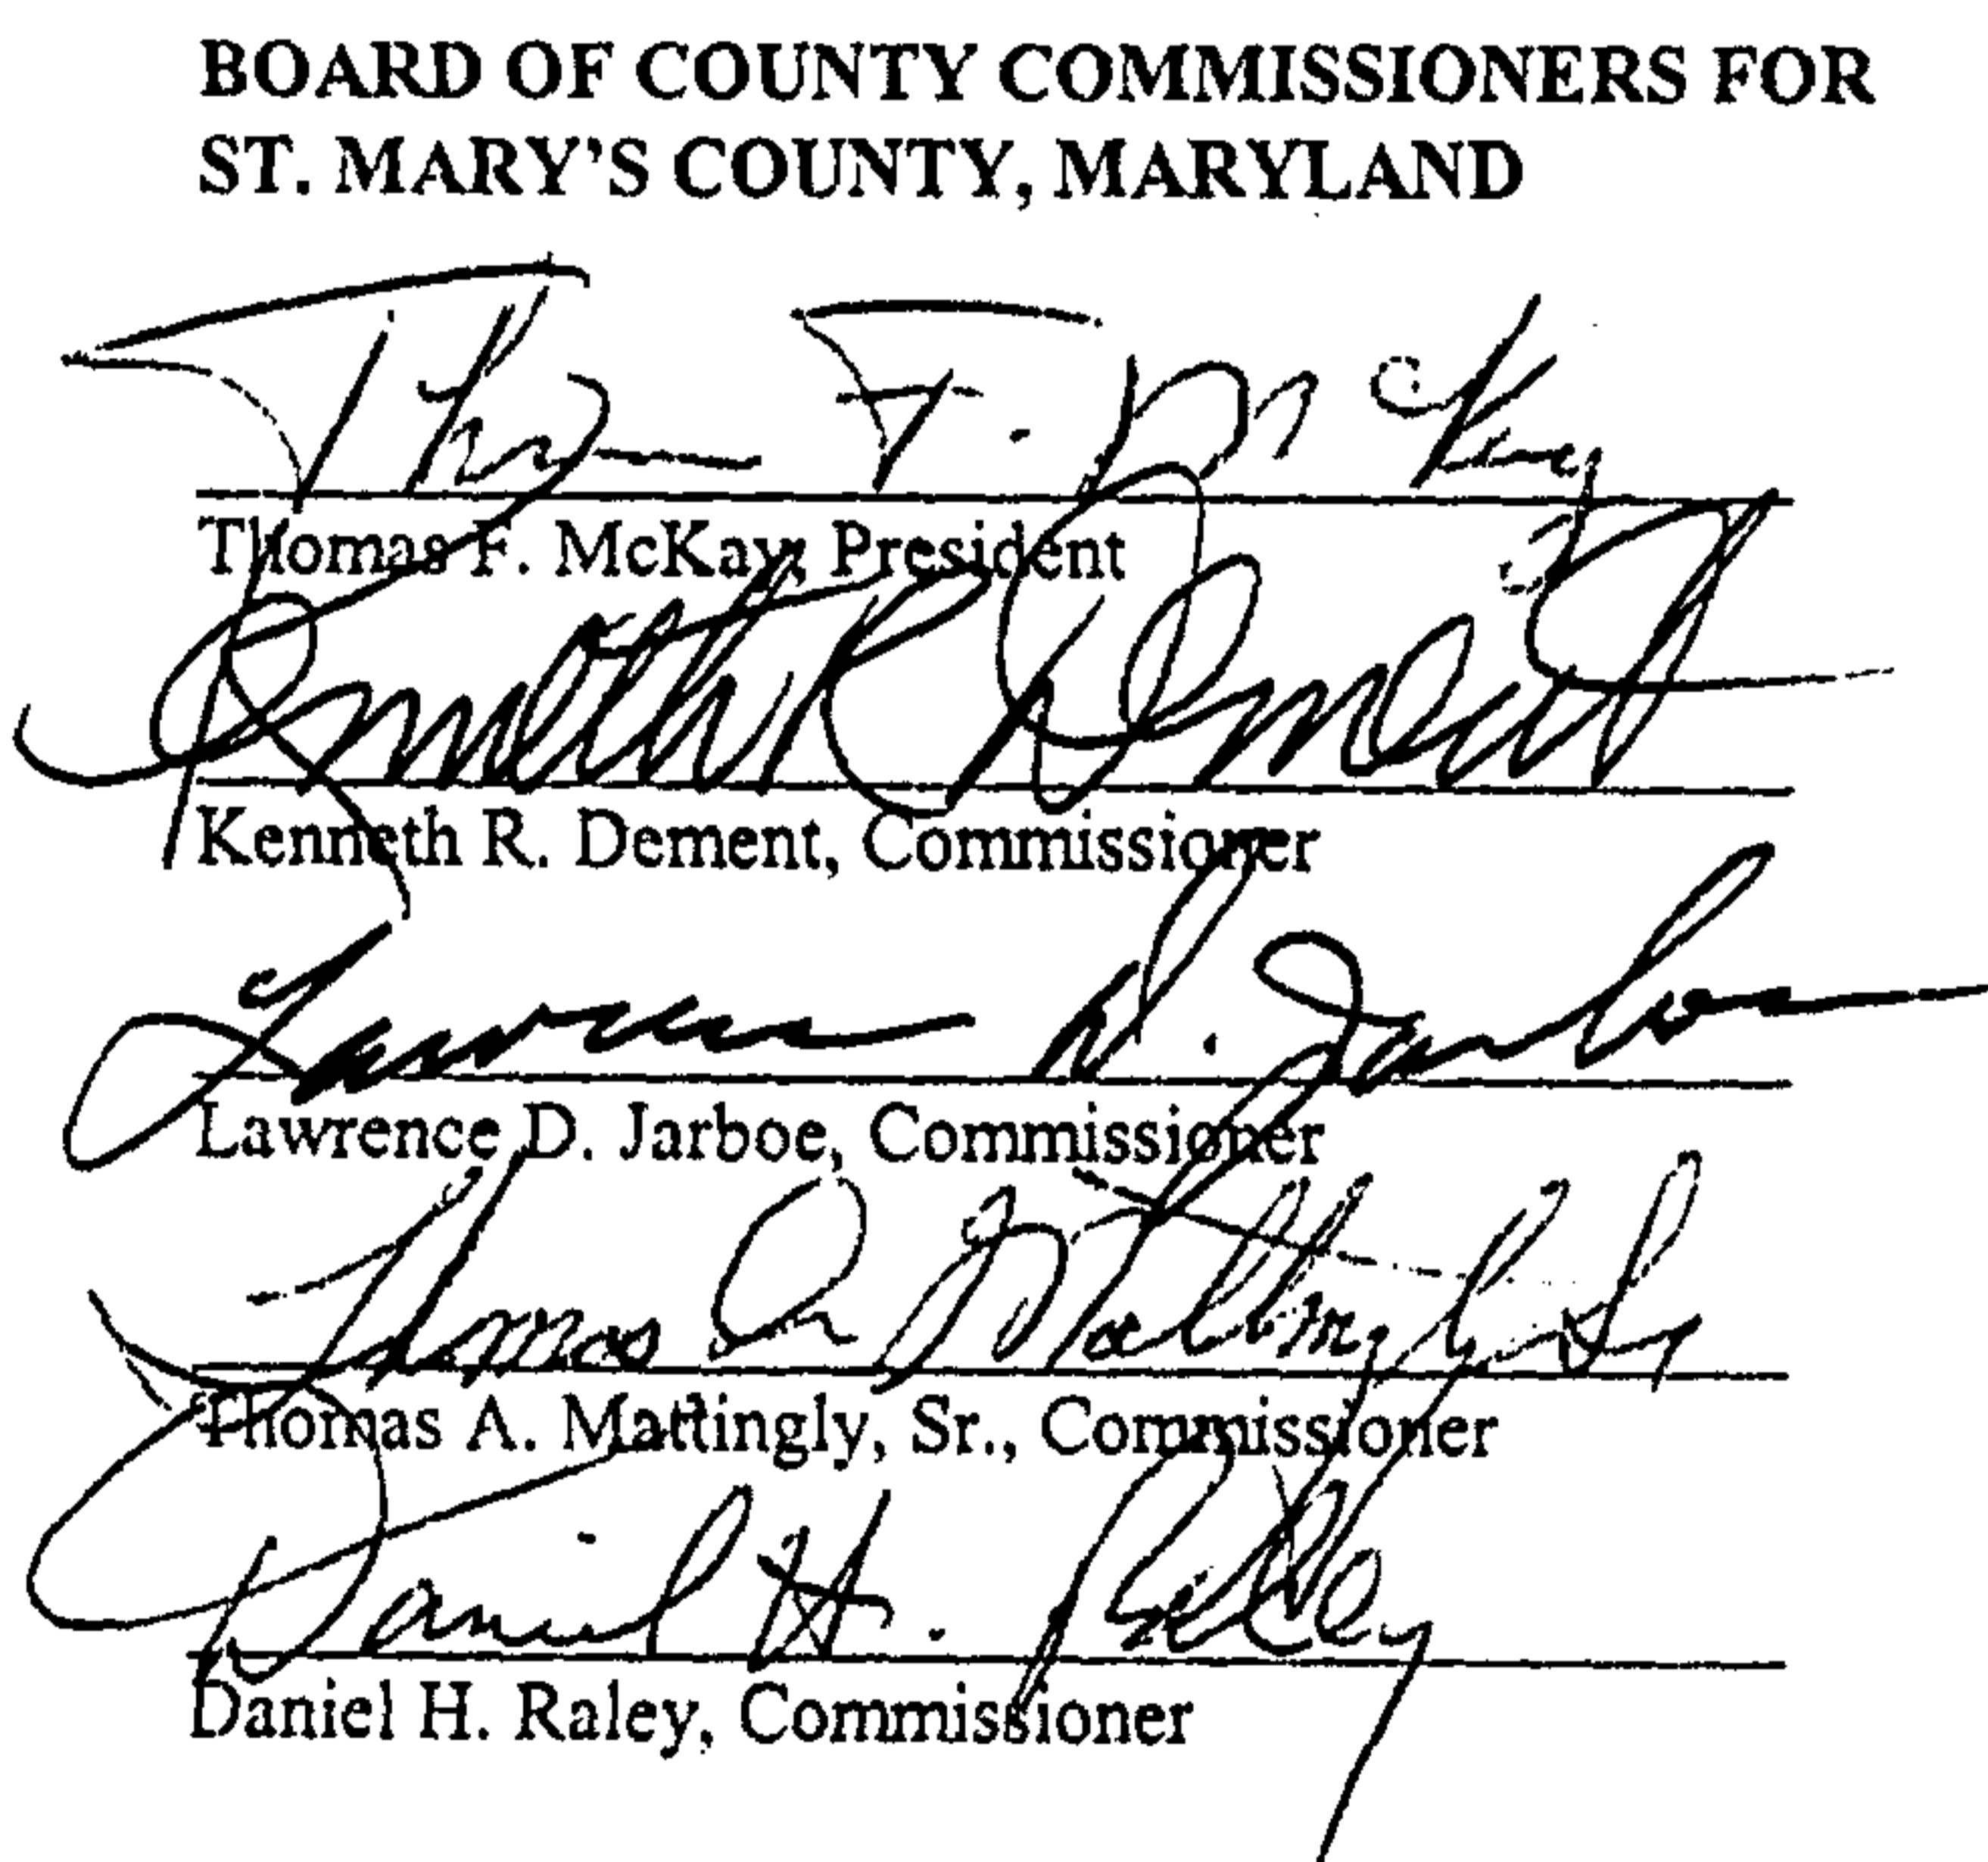 BOARD OF COUNTY COMMISSIONERS FOR
ST. MARY'S COUNTY, MARYLAND
Thomas F. McKay
Thomas F. McKay, President
Kenneth R Dement
Kenneth R. Dement, Commissioner
Lawrence D. Jarboe
Lawrence D. Jarboe, Commissioner
Thomas A Mattingly Sr
Thomas A. Mattingly, Sr., Commissioner
Daniel H. Raley
Daniel H. Raley, Commissioner